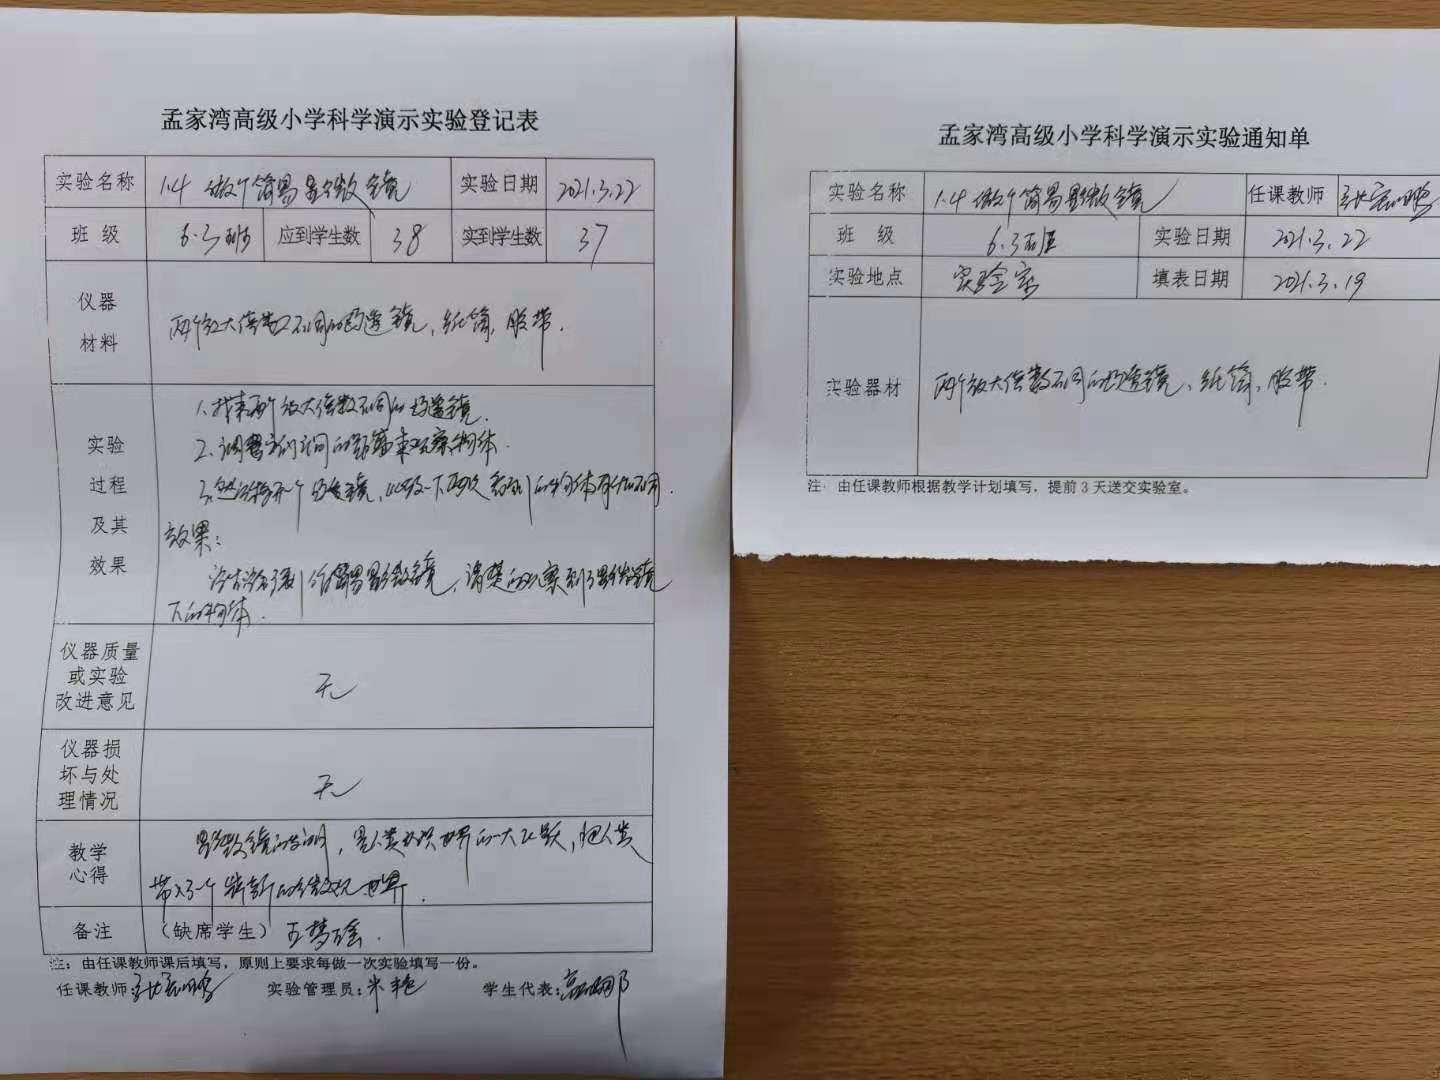 孟家湾高级小学科学演示实验登记表
实验名称 1.4 做个简易显微镜 实验日期 2021.3.22
班 级 6.3班 应到学生数 38 实到学生数 37
仪器
材料
两个放大倍数不同的凸透镜、纸筒、胶带.
实验
过程
及其
效果
1.找来两个放大倍数不同的凸透镜.
2.调整它们之间的距离来观察物体.
3.然后移开一个凸透镜,比较一下两次看到的物体有什么不同.
效果:
制作简易显微镜,清楚的观察到了显微镜
下的物体.
仪器质量
或实验
改进意见
无
仪器损
坏与处
理情况
无
教学
心得
显微镜的发明,是人类认识世界的一大飞跃,把人类
带入了一个崭新的微观世界.
备注 (缺席学生) 王梦瑶.
注:由任课教师课后填写,原则上要求每做一次实验填写一份。
任课教师: 实验管理员:米艳 学生代表:
孟家湾高级小学科学演示实验通知单
实验名称 1.4 做个简易显微镜 任课教师
班 级 6.3班 实验日期 2021.3.22
实验地点 实验室 填表日期 2021.3.19
实验器材 两个放大倍数不同的凸透镜、纸筒、胶带.
注:由任课教师根据教学计划填写,提前3天送交实验室。